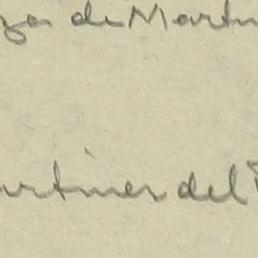 za de Martin
artines del